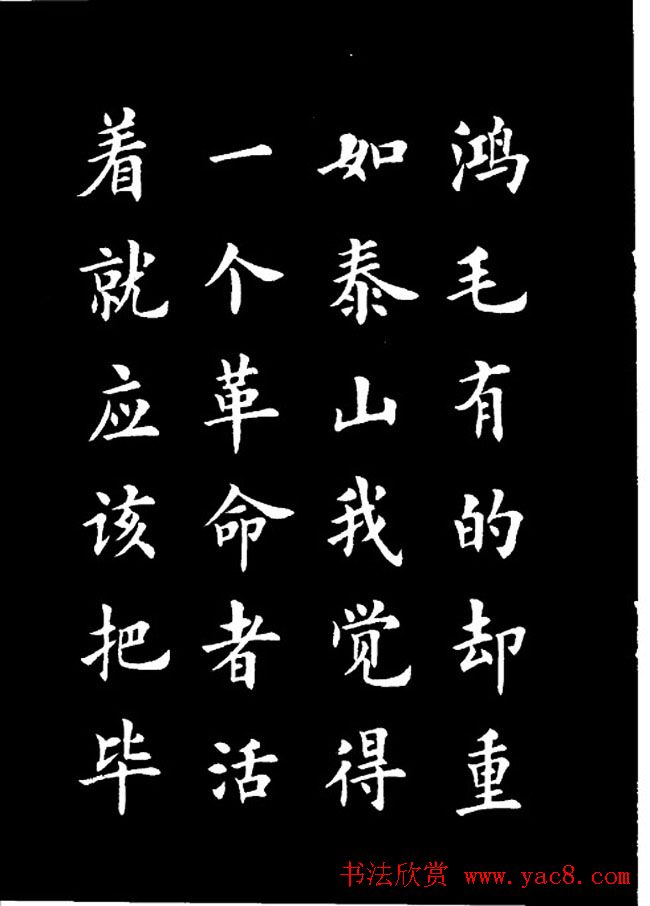 鸿毛有的却重
如泰山我觉得
一个革命者活
着就应该把毕
书法欣赏 www.yac8.com